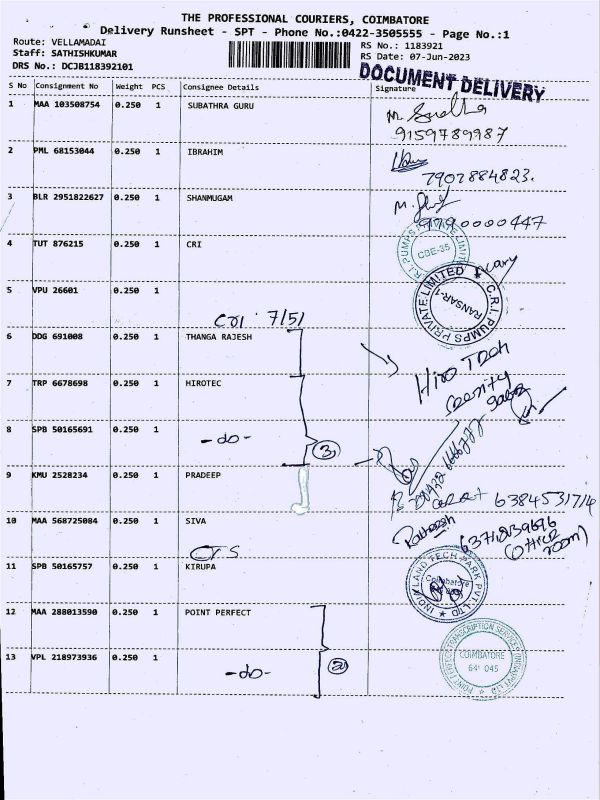 THE PROFESSIONAL COURIERS, COIMBATORE
Delivery Runsheet - SPT - Phone No.:0422-3505555 - Page No.:1
Route: VELLAMADAI
Staff: SATHISHKUMAR
DRS No.: DCJB118392101
RS No.: 1183921
RS Date: 07-Jun-2023
DOCUMENT DELIVERY
S No Consignment No Weight PCS Consignee Details Signature
1 MAA 103508754 0.250 1 SUBATHRA GURU
9159789987
2 PML 68153044 0.250 1 IBRAHIM
7907884823.
3 BLR 2951822627 0.250 1 SHANMUGAM
9790000447
4 TUT 876215 0.250 1 CRI
C.R.I. PUMPS PRIVATE LIMITED
CBE-35
5 VPU 26601 0.250 1
C.R.I. PUMPS PRIVATE LIMITED
CRI 7/51
6 DDG 691008 0.250 1 THANGA RAJESH
7 TRP 6678698 0.250 1 HIROTEC
Hiro Tech
8 SPB 50165691 0.250 1
-do- 3
9 KMU 2528234 0.250 1 PRADEEP
6384531714
10 MAA 568725084 0.250 1 SIVA
(Office room)
CTS
11 SPB 50165757 0.250 1 KIRUPA
INDIALAND TECH PARK PVT LTD
Coimbatore
12 MAA 288013590 0.250 1 POINT PERFECT
13 VPL 218973936 0.250 1
-do- 2
COIMBATORE
641 045